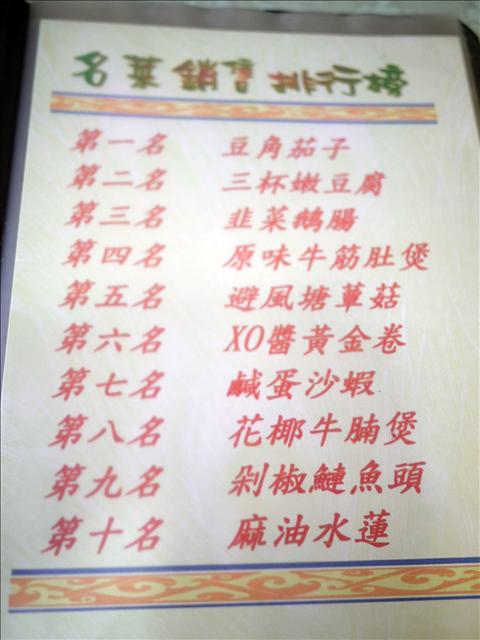 名菜銷售排行榜
第一名 豆角茄子
第二名 三杯嫩豆腐
第三名 韭菜鵝腸
第四名 原味牛筋肚煲
第五名 避風塘蕈菇
第六名 XO醬黃金卷
第七名 鹹蛋沙蝦
第八名 花椰牛腩煲
第九名 剁椒鰱魚頭
第十名 麻油水蓮